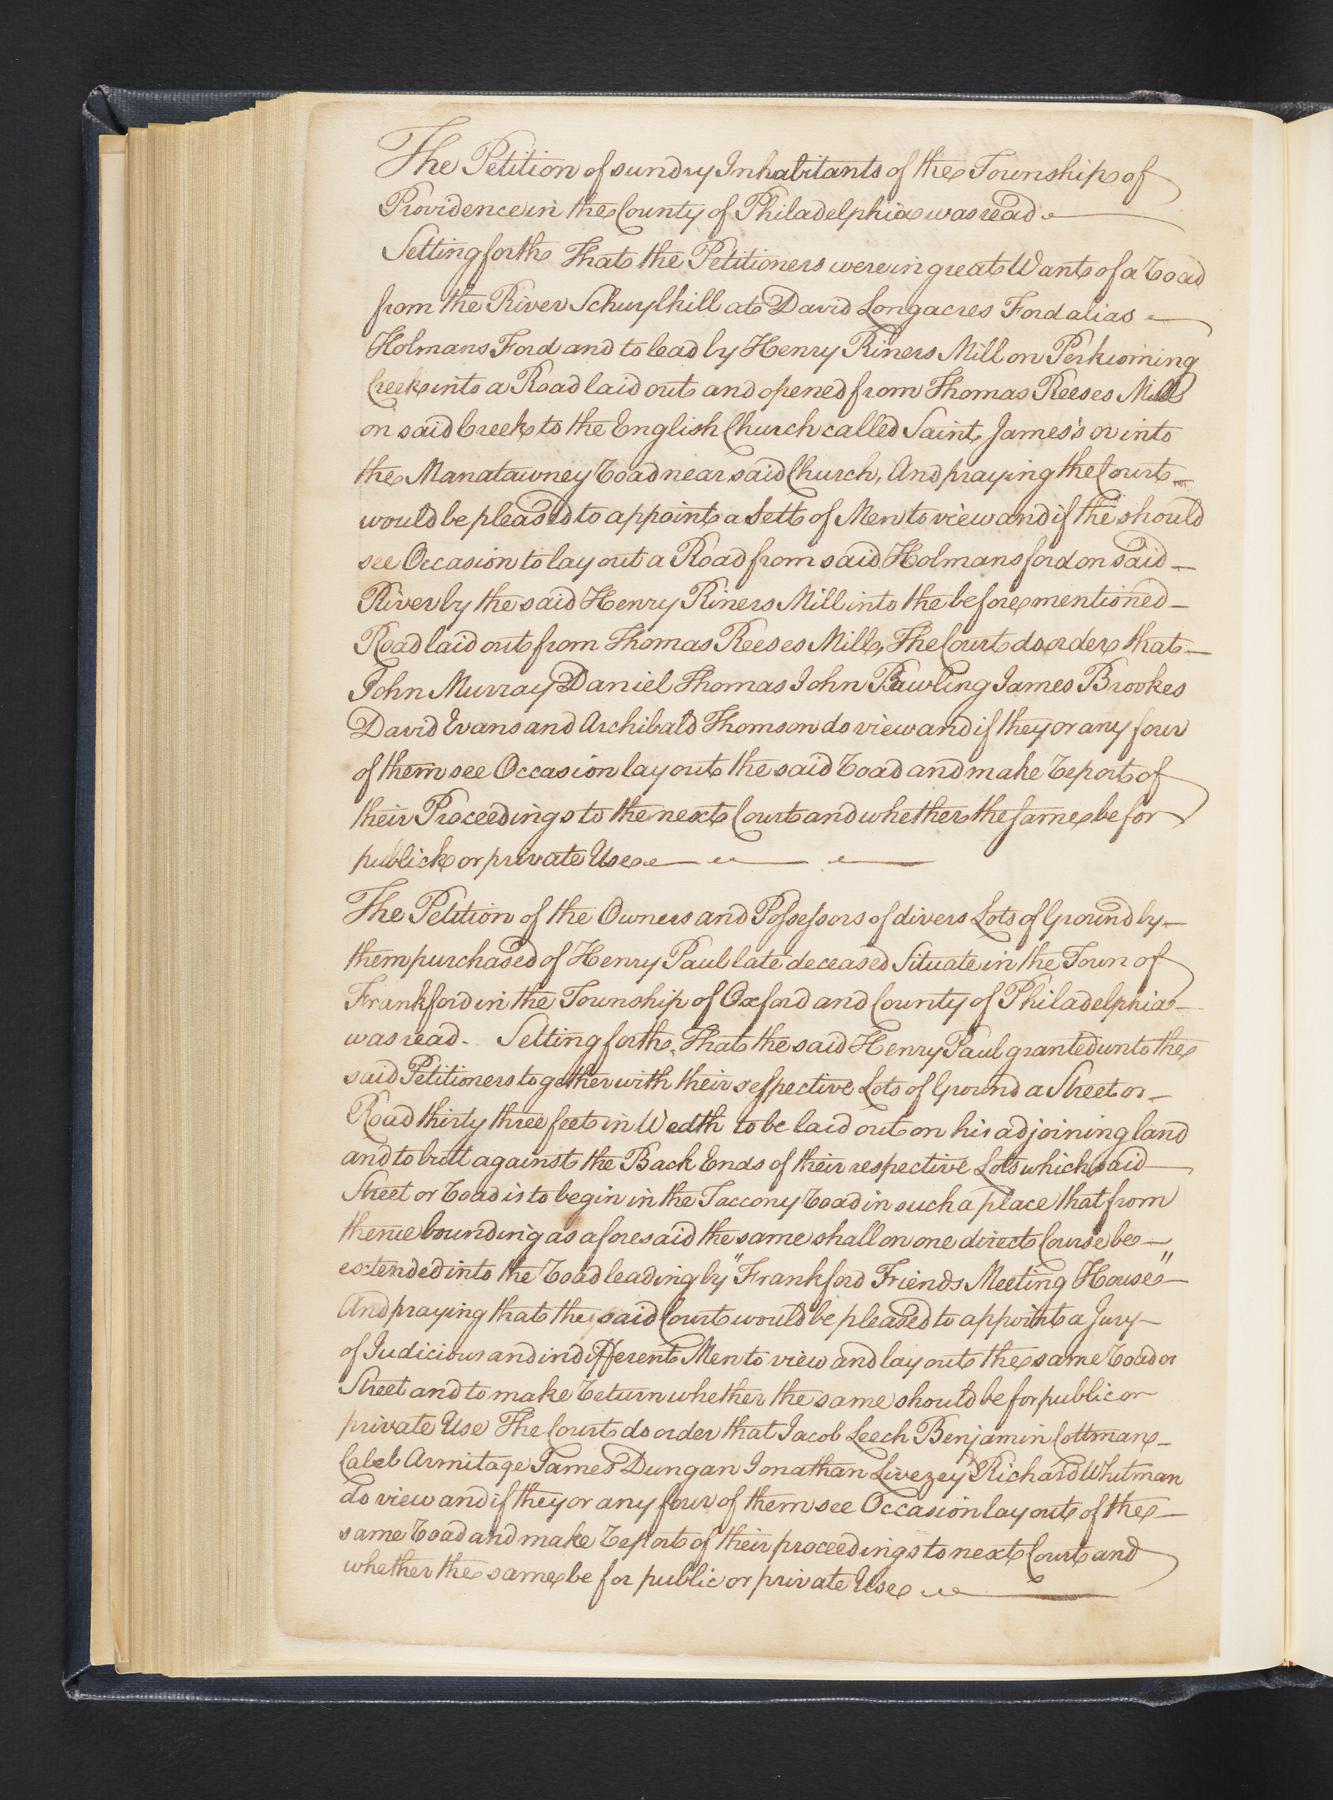 The Petition of sundry Inhabitants of the Township of
Providence in the County of Philadelphia was read
Setting forth That the Petitioners were in great Want of a road
from the River Schuylkill at David Longacres Ford alias
Holmans Ford and to lead by Henry Riners Mill on Perkioming
Creek into a Road laid out and opened from Thomas Reeses Mill
on said Creek to the English Church called Saint James's or into
the Manatawney road near said Church, And praying the Court
would be pleased to appoint a Sett of Men to view and if the should
see Occasion to lay out a Road from said Holmans ford on said
River by the said Henry Riners Mill into the before mentioned
Road laid out from Thomas Reeses Mill, The Court do order that
John Murray Daniel Thomas John Pawling James Brookes
David Evans and Archibald Thomson do view and if they or any four
of them see Occasion lay out the said road and make report of
their Proceedings to the next Court and whether the same be for
publick or private Use
The Petition of the Owners and Possessors of divers Lots of Ground by
them purchased of Henry Paul late deceased Situate in the Town of
Frankford in the Township of Oxford and County of Philadelphia
was read. Setting forth, That the said Henry Paul granted unto the
said Petitioners together with their respective Lots of Ground a Street or
Road thirty three feet in Wedth to be laid out on his adjoining land
and to butt against the Back Ends of their respective Lots which said
Street or road is to begin in the Taccony road in such a place that from
thence bounding as aforesaid the same shall on one direct Course be
extended into the road leading by "Frankford Friends Meeting House"
And praying that the said Court would be pleased to appoint a Jury
of Judicious and indifferent Men to view and lay out the same road or
Street and to make return whether the same should be for public or
private Use The Court do order that Jacob Leech Benjamin Cottman
Caleb Armitage James Dungan Jonathan Livezey & Richard Whitman
do view and if they or any four of them see Occasion lay out of the
same road and make report of their proceedings to next Court and
whether the same be for public or private Use